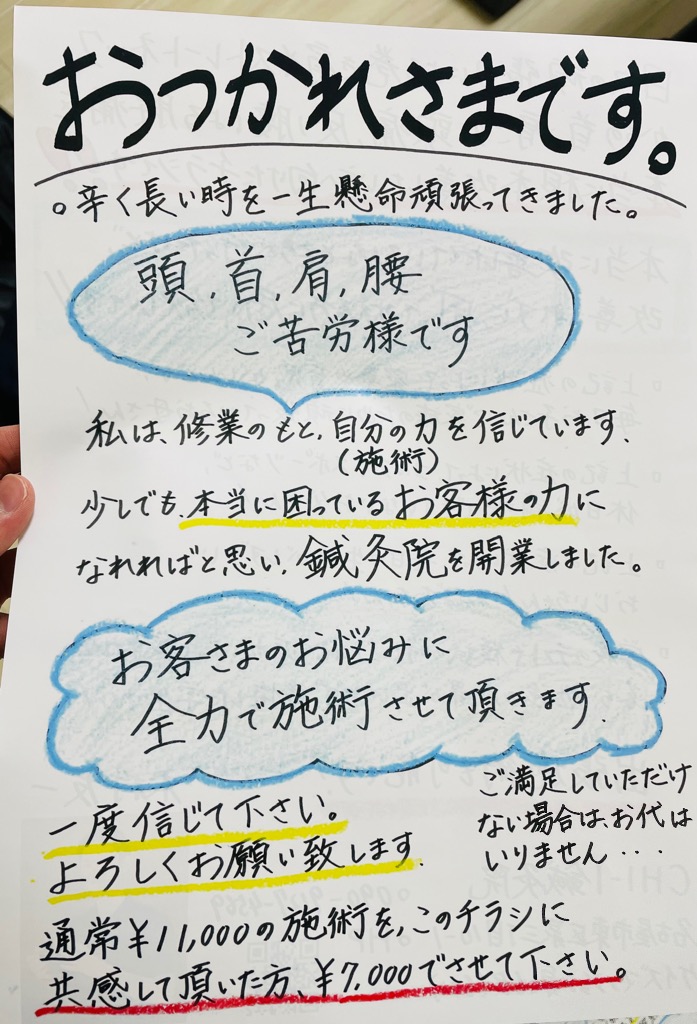 おつかれさまです。
。辛く長い時を一生懸命頑張ってきました。
頭,首,肩,腰
ご苦労様です
私は、修業のもと,自分の力を信じています.
(施術)
少しでも、本当に困っているお客様の力に
なれればと思い,鍼灸院を開業しました。
お客さまのお悩みに
全力で施術させて頂きます.
ご満足していただけ
ない場合は、お代は
いりません・・・
一度信じて下さい。
よろしくお願い致します.
通常¥11,000の施術を,このチラシに
共感して頂いた方、¥7,000でさせて下さい。